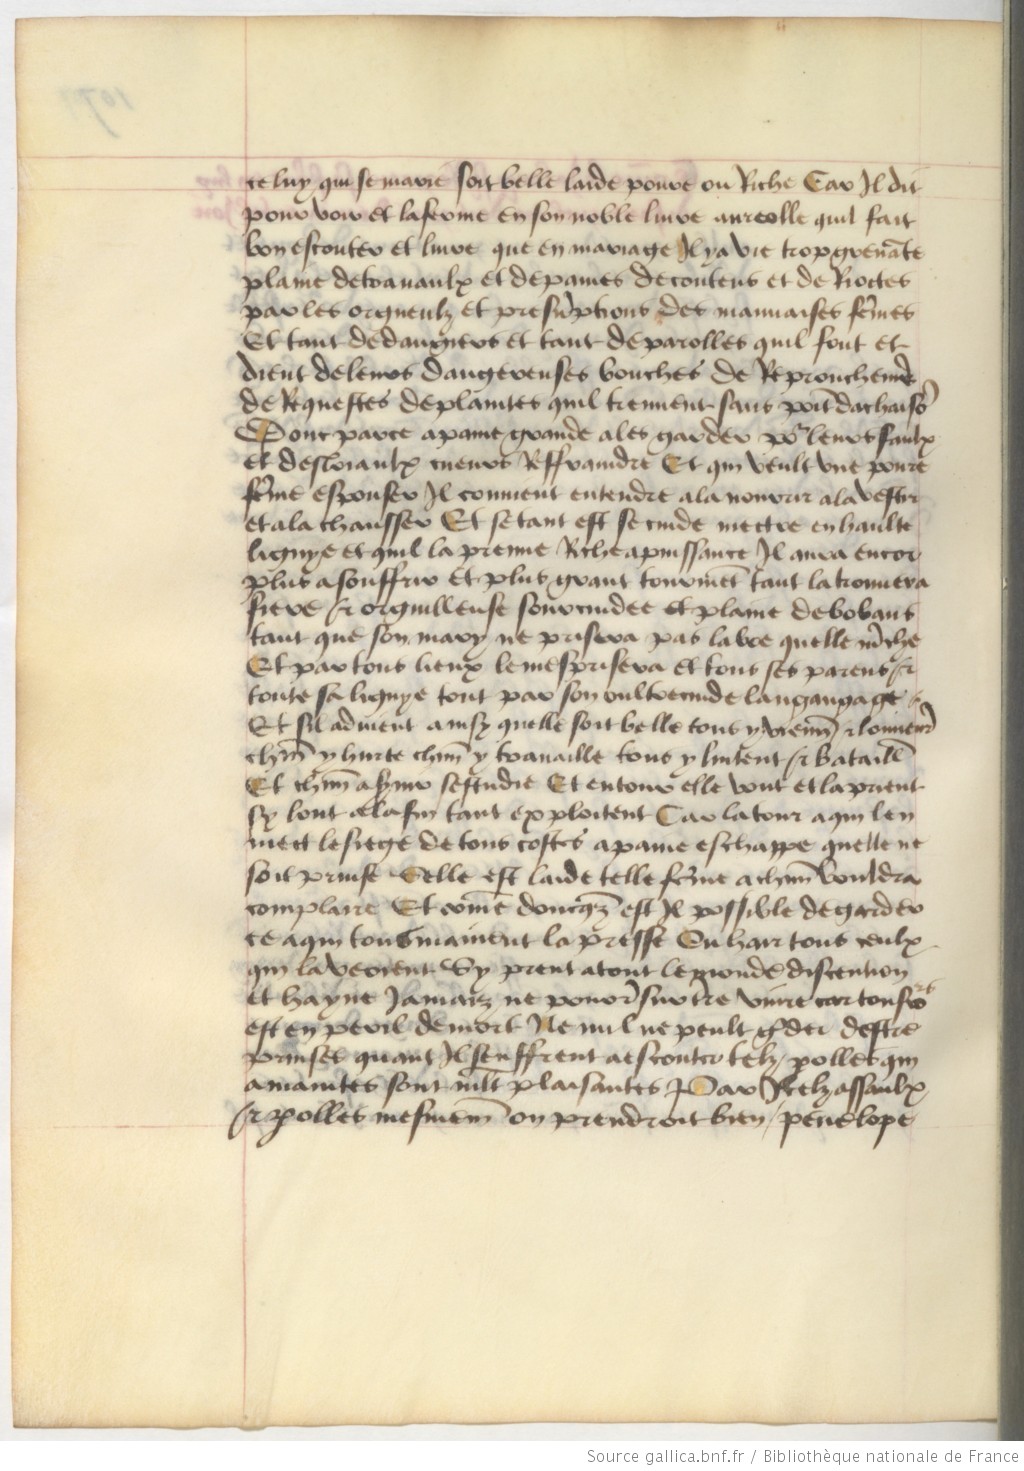 celuy qui se marie soit belle laide poure ou Riche Car Il dit
pour voir et lafferme en son noble liure aureolle quil fait
bon escouter et liure que en mariage Il ya vie trop greuāte
plaine de trauaulx et de paines de contens et de Riottes
par les orgueulz et presūptions des mauuaises fēmes
Et tant de dangiers et tant de parolles quil font et
dient de leurs dangereuses bouches de Reprouchemēs
de Requestes de plaintes quil treuuent sans poīt dachaisō
Donc par ce a paine grande a les garder po' leurs faulx
et desloiaulx cueurs Reffraindre Et qui veult vne poure
fēme espouser Il conuient entendre a la nourir a la vestir
et a la chausser Et se tant est se cuide mectre en haulte
lignye et quil la prenne Riche a puissance Il aura encor
plus a souffrir et plus grant tourmēt tant la trouuera
fiere & orguilleuse sourcuidee et plaine de bobans
tant que son mary ne prisera pas la vce quelle mīche
Et par tous lieux le mesprisera et tous ses parens &
toute sa lignye tout par son oultrecuide langaugage
Et sil aduient ainsy quelle soit belle tous y viennē &
chūn y hurte chūn y trauaille tous y luitent & bataillē
Et chūn a lymr sestudie Et entour elle vont et la prient
sy lont a la fin tant exploitent Car la tour a qui len
mect le siege de tous costes a paine eschappe quelle ne
soit prinse Selle est laide telle fēme a chūn vouldra
complaire Et comē doncqz est Il possible de garder
ce a qui tous mainent la presse On hair tous ceulx
qui la veoient Sy prent a tout le monde discention
et hayne Jamaiz ne pouoir sur tre viure car tousiors
est en peril de mort Ne nul ne peult gder destre
prinses quant Il seuffrent a escouter telz polles qui
amaintes sont mlt plaisantes Par Itelz assaulx
& polles mesmemē on prendroit bien penelope
107
Source gallica.bnf.fr / Bibliothèque nationale de France